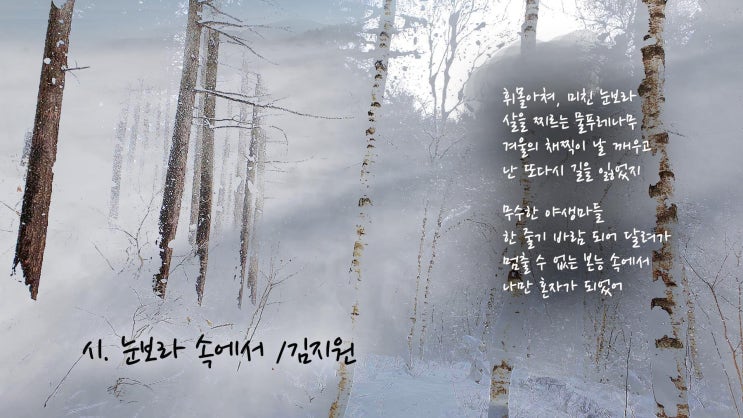 휘몰아쳐, 미친 눈보라
살을 찌르는 물푸레나무
겨울의 채찍이 날 깨우고
난 또다시 길을 잃었지
무수한 야생마들
한 줄기 바람 되어 달려가
멈출 수 없는 본능 속에서
나만 혼자가 되었어
시. 눈보라 속에서 /김지원